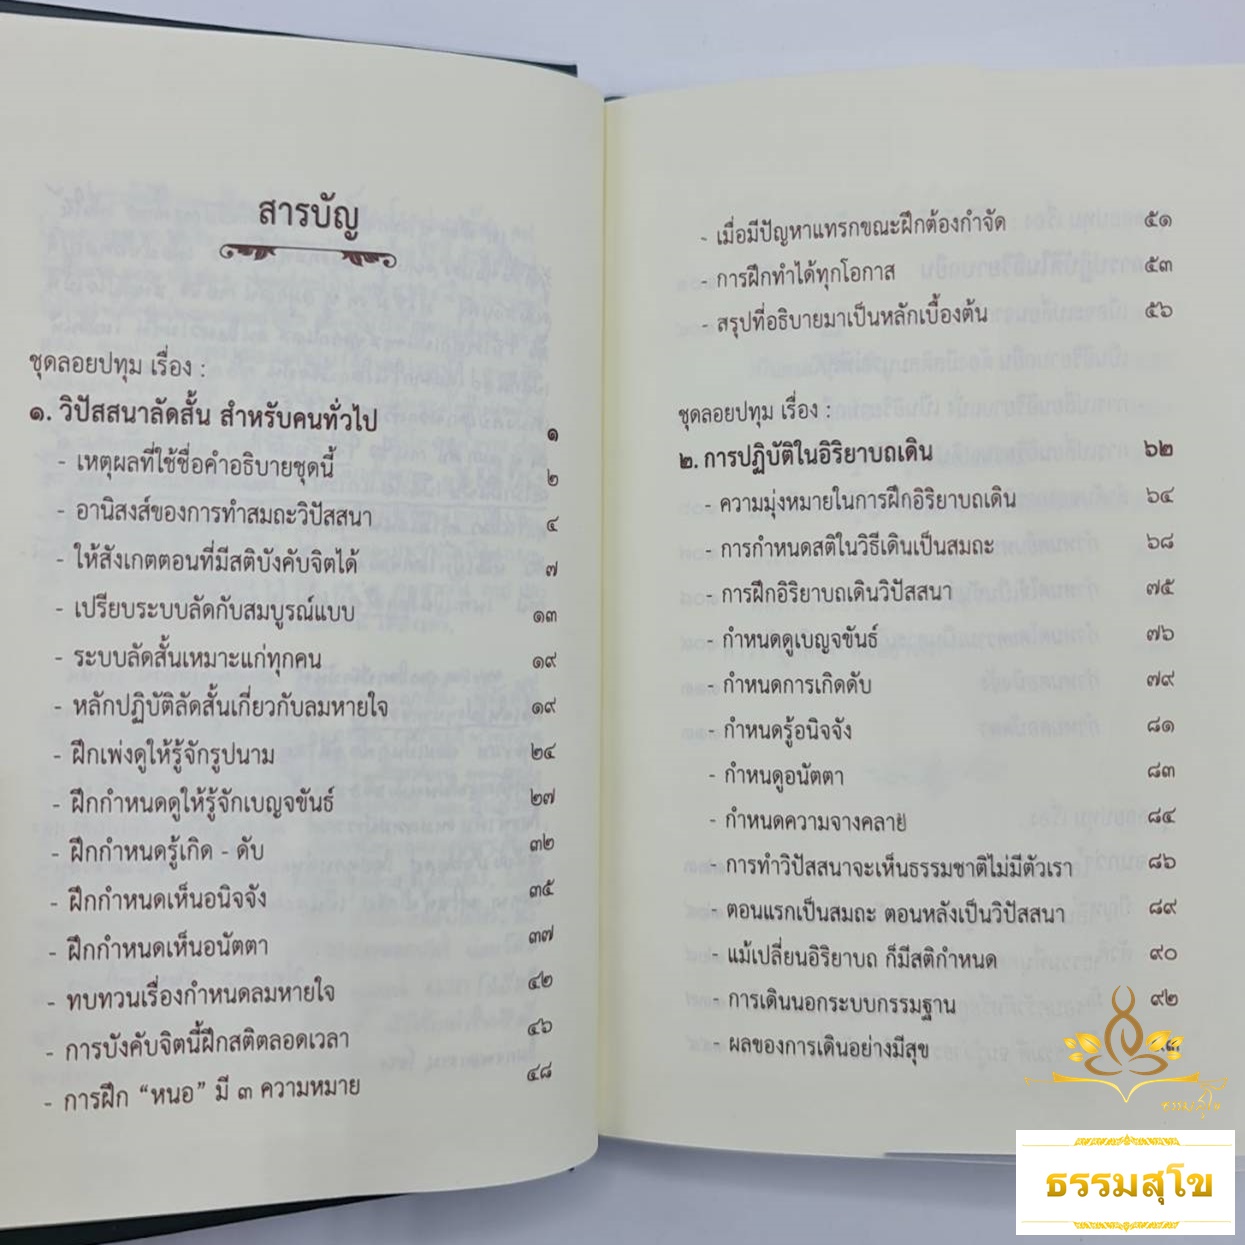 สารบัญ
ชุดลอยปทุม เรื่อง :
๑. วิปัสสนาลัดสั้น สำหรับคนทั่วไป ๑
- เหตุผลที่ใช้ชื่อคำอธิบายชุดนี้ ๒
- อานิสงส์ของการทำสมถะวิปัสสนา ๔
- ให้สังเกตตอนที่มีสติบังคับจิตได้ ๗
- เปรียบระบบลัดกับสมบูรณ์แบบ ๑๓
- ระบบลัดสั้นเหมาะแก่ทุกคน ๑๙
- หลักปฏิบัติลัดสั้นเกี่ยวกับลมหายใจ ๑๙
- ฝึกเพ่งดูให้รู้จักรูปนาม ๒๔
- ฝึกกำหนดดูให้รู้จักเบญจขันธ์ ๒๗
- ฝึกกำหนดรู้เกิด - ดับ ๓๒
- ฝึกกำหนดเห็นอนิจจัง ๓๕
- ฝึกกำหนดเห็นอนัตตา ๓๗
- ทบทวนเรื่องกำหนดลมหายใจ ๔๒
- การบังคับจิตนี้ฝึกสติตลอดเวลา ๔๖
- การฝึก “หนอ” มี ๓ ความหมาย ๔๘
- เมื่อมีปัญหาแทรกขณะฝึกต้องกำจัด ๕๑
- การฝึกทำได้ทุกโอกาส ๕๓
- สรุปที่อธิบายมาเป็นหลักเบื้องต้น ๕๖
ชุดลอยปทุม เรื่อง :
๒. การปฏิบัติในอิริยาบถเดิน ๖๒
- ความมุ่งหมายในการฝึกอิริยาบถเดิน ๖๔
- การกำหนดสติในวิธีเดินเป็นสมถะ ๖๘
- การฝึกอิริยาบถเดินวิปัสสนา ๗๕
- กำหนดดูเบญจขันธ์ ๗๖
- กำหนดการเกิดดับ ๗๙
- กำหนดรู้อนิจจัง ๘๑
- กำหนดูอนัตตา ๘๓
- กำหนดความจางคลาย ๘๔
- การทำวิปัสสนาจะเห็นธรรมชาติไม่มีตัวเรา ๘๖
- ตอนแรกเป็นสมถะ ตอนหลังเป็นวิปัสสนา ๘๙
- แม้เปลี่ยนอิริยาบถ ก็มีสติกำหนด ๙๐
- การเดินนอกระบบกรรมฐาน ๙๒
- ผลของการเดินอย่างมีสุข
ธรรมสุโข
ธรรมสุโข